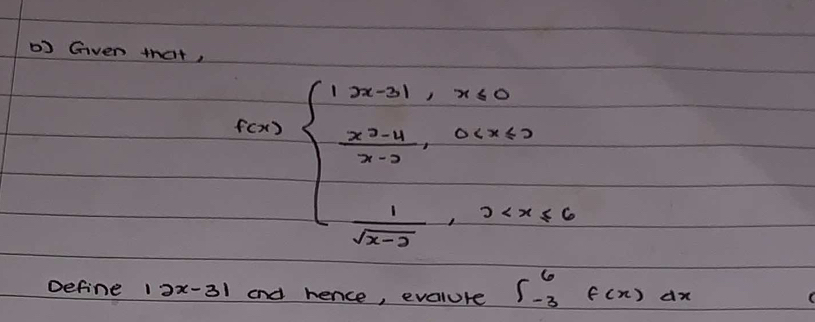 b) Given that,
f(x) { |2x-3| , x ≤ 0
(x²-4)/(x-2) , 0 < x ≤ 2
1/√(x-2) , 2 < x ≤ 6
Define |2x-3| and hence, evalute ∫₋₃⁶ f(x) dx